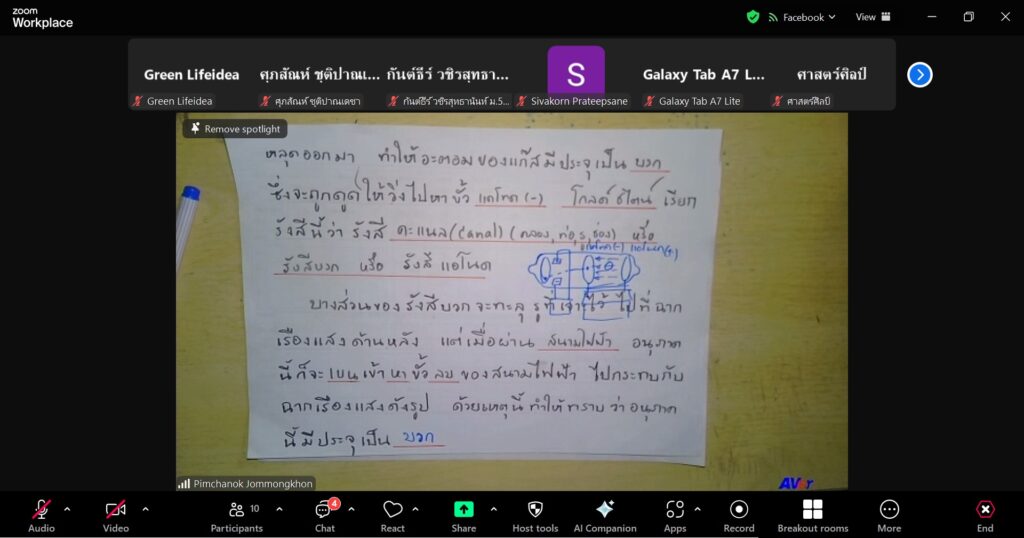 zoom
Workplace
Facebook
View
Green Lifeidea
ศุภสัณห์ ชุติปาณเ...
กันต์ธีร์ วชิรสุทธา...
S
Galaxy Tab A7 L...
ศาสตร์ศิลป์
Green Lifeidea
ศุภสัณห์ ชุติปาณเดชา
กันต์ธีร์ วชิรสุทธานันท์ ม.5...
Sivakorn Prateepsane
Galaxy Tab A7 Lite
ศาสตร์ศิลป์
Remove spotlight
หลุดออกมา ทำให้อะตอมของแก๊สมีประจุเป็น บวก
ซึ่งจะถูกดูดให้วิ่งไปหาขั้ว แคโทด (-) โกลด์ชไตน์ เรียก
รังสีนี้ว่า รังสี คะแนล (Canal) (คลอง, ท่อ, รู, ช่อง) หรือ
แคโทด(-) แอโนด(+)
รังสีบวก หรือ รังสีแอโนด
บางส่วนของรังสีบวกจะทะลุรูที่เจาะไว้ไปที่ฉาก
เรืองแสงด้านหลัง แต่เมื่อผ่าน สนามไฟฟ้า อนุภาค
นี้ก็จะ เบน เข้า หา ขั้ว ลบ ของสนามไฟฟ้า ไปกระทบกับ
ฉากเรืองแสงดังรูป ด้วยเหตุนี้ทำให้ทราบว่าอนุภาค
นี้มีประจุเป็น บวก
Pimchanok Jommongkhon
AVer
Audio
Video
Participants
10
Chat
4
React
Share
Host tools
AI Companion
Apps
Record
Breakout rooms
More
End